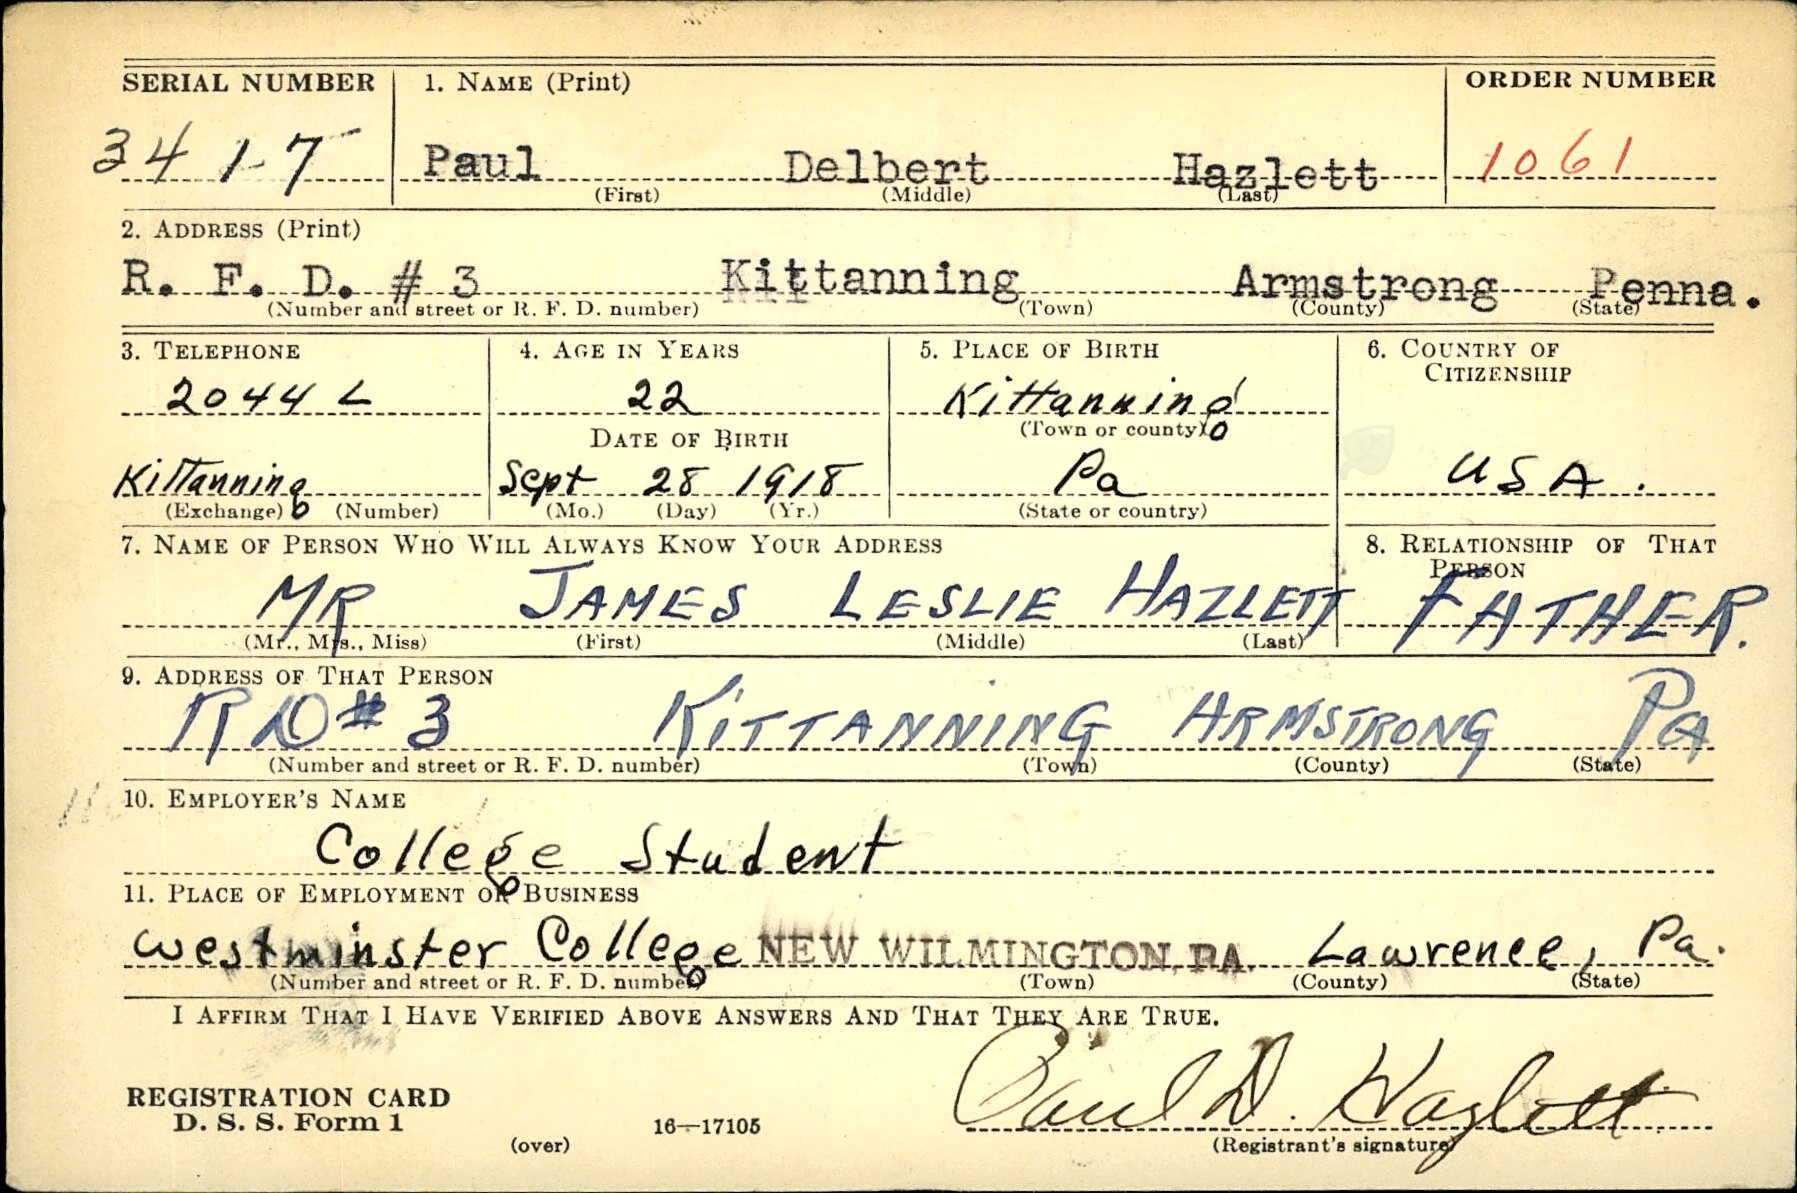 SERIAL NUMBER 1. NAME (Print) ORDER NUMBER
3417 Paul Delbert Hazlett 1061
(First) (Middle) (Last)
2. ADDRESS (Print)
R. F. D. # 3 Kittanning Armstrong Penna.
(Number and street or R. F. D. number) (Town) (County) (State)
3. TELEPHONE 4. AGE IN YEARS 5. PLACE OF BIRTH 6. COUNTRY OF CITIZENSHIP
2044 L 22 Kittanning
DATE OF BIRTH (Town or county)
Kittanning Sept 28 1918 Pa USA.
(Exchange) (Number) (Mo.) (Day) (Yr.) (State or country)
7. NAME OF PERSON WHO WILL ALWAYS KNOW YOUR ADDRESS 8. RELATIONSHIP OF THAT PERSON
MR JAMES LESLIE HAZLETT FATHER.
(Mr., Mrs., Miss) (First) (Middle) (Last)
9. ADDRESS OF THAT PERSON
R D # 3 KITTANNING ARMSTRONG PA
(Number and street or R. F. D. number) (Town) (County) (State)
10. EMPLOYER'S NAME
College Student
11. PLACE OF EMPLOYMENT OR BUSINESS
Westminster College NEW WILMINGTON, PA. Lawrence, Pa.
(Number and street or R. F. D. number) (Town) (County) (State)
I AFFIRM THAT I HAVE VERIFIED ABOVE ANSWERS AND THAT THEY ARE TRUE.
Paul D. Hazlett
REGISTRATION CARD
D. S. S. Form 1 16—17105
(over) (Registrant's signature)